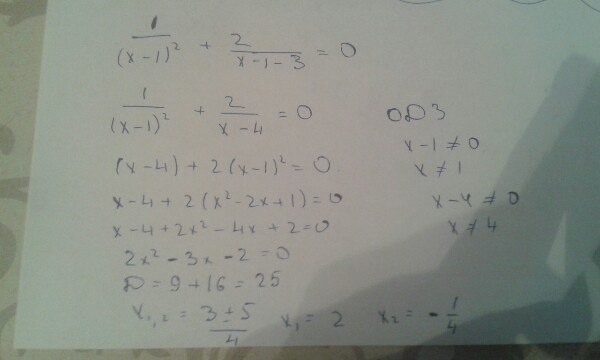 1/(x-1)² + 2/(x-1-3) = 0
1/(x-1)² + 2/(x-4) = 0
ОДЗ
x-1≠0
x≠1
(x-4) + 2(x-1)² = 0.
x-4≠0
x-4 + 2(x²-2x+1) = 0
x≠4
x-4+2x²-4x+2=0
2x²-3x-2=0
D = 9+16 = 25
x₁,₂ = (3±5)/4 x₁ = 2 x₂ = -1/4